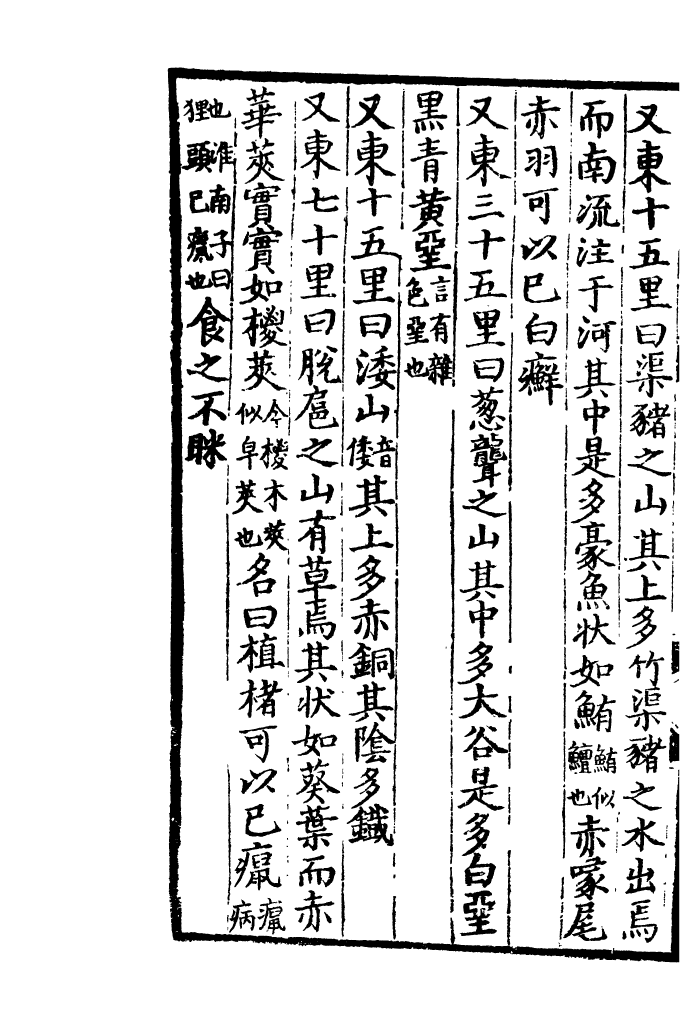 又東十五里曰渠豬之山其上多竹渠豬之水出焉
而南流注于河其中是多豪魚状如鮪鮪似鱣也赤喙尾
赤羽可以已白癬
又東三十五里曰葱聾之山其中多大谷是多白堊
黒青黄堊言有雜色堊也
又東十五里曰涹山音倭其上多赤銅其陰多鐡
又東七十里曰脫扈之山有草焉其状如葵葉而赤
華莢實實如椶莢今椶木莢似皁莢也名曰植楮可以已癙癙病
也淮南子曰狸頭已癙也食之不眯